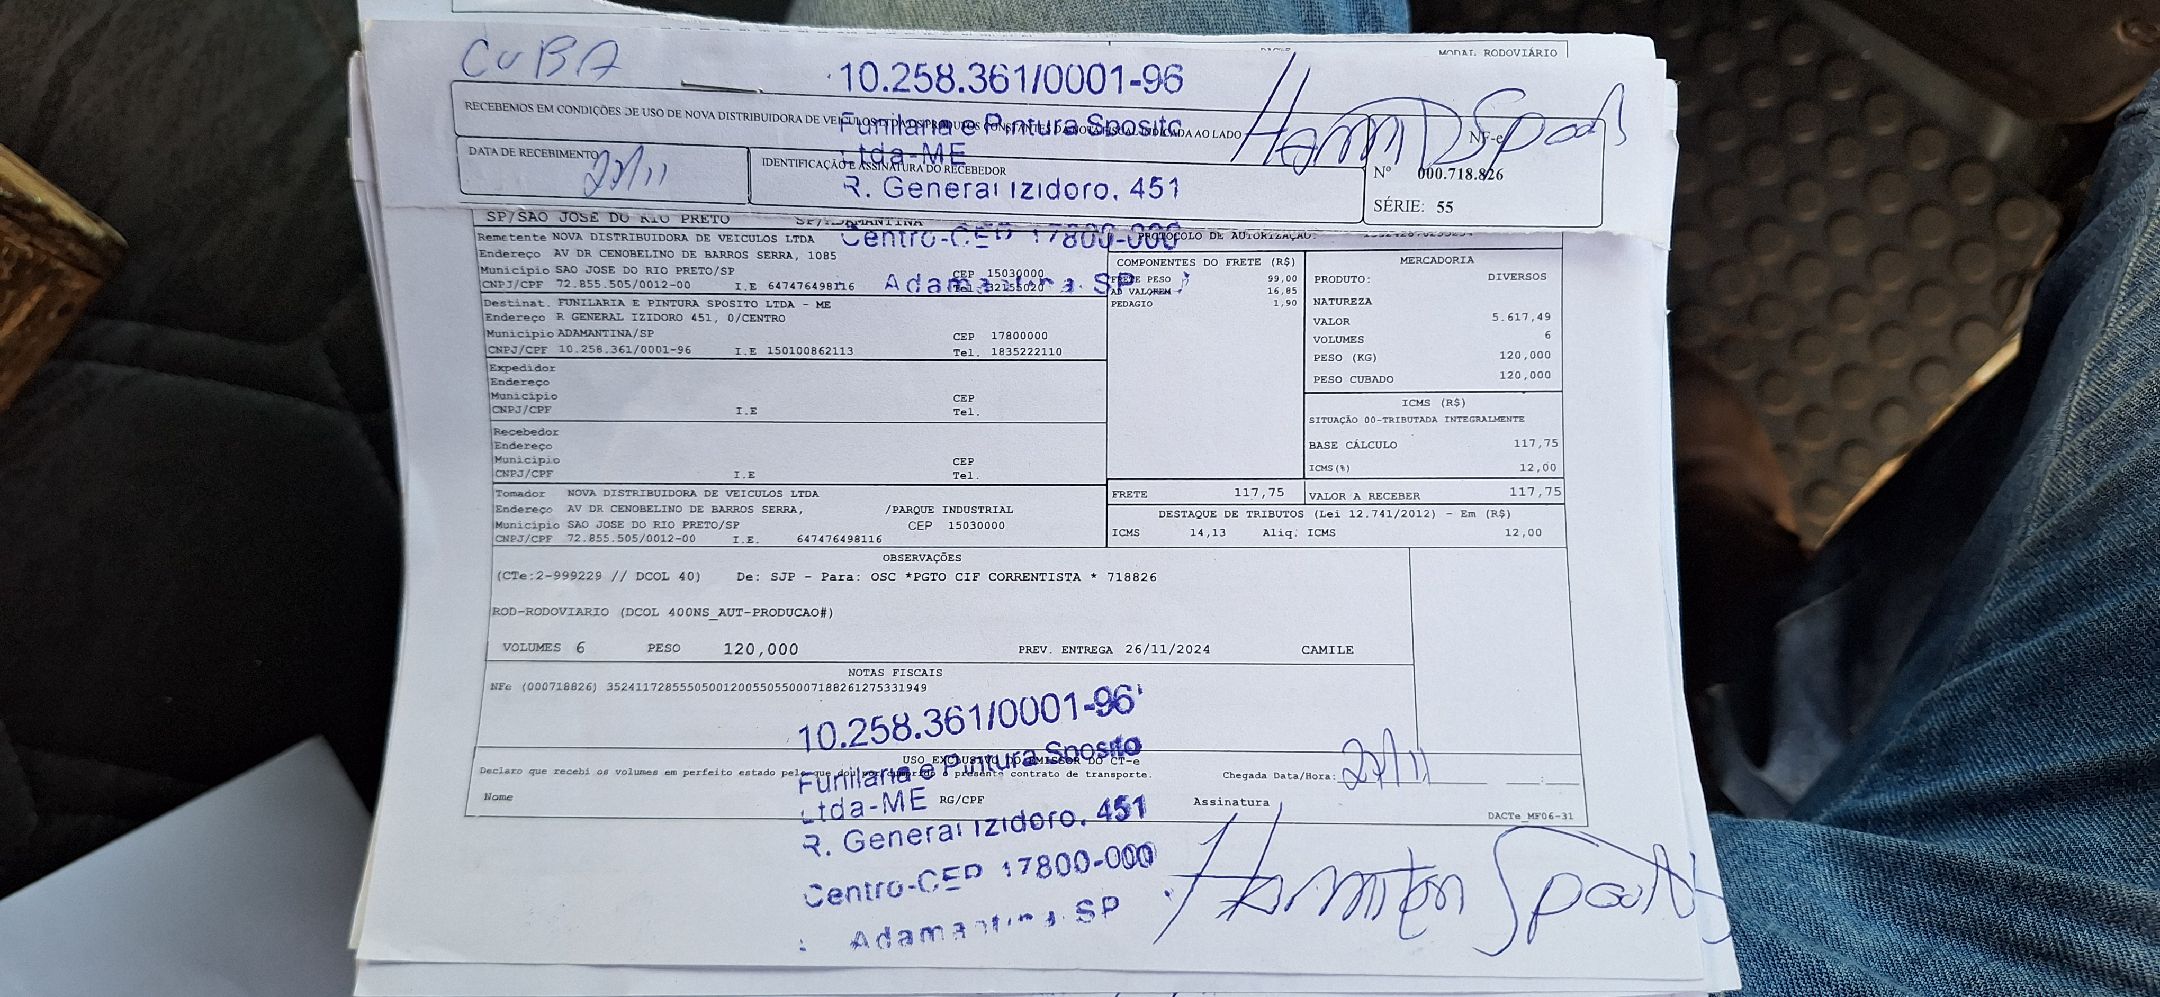 CUBA
MODAL RODOVIÁRIO
10.258.361/0001-96
RECEBEMOS EM CONDIÇÕES DE USO DE NOVA DISTRIBUIDORA DE VEICULOS INDICADA AO LADO
Funilaria e Pintura Sposito
Ltda-ME
R. General Izidoro, 451
Centro-CEP 17800-000
Adamantina SP
DATA DE RECEBIMENTO
IDENTIFICAÇÃO E ASSINATURA DO RECEBEDOR
NF-e
Nº 000.718.826
SÉRIE: 55
SP/SAO JOSE DO RIO PRETO SP/ADAMANTINA
PROTOCOLO DE AUTORIZAÇAO:
Remetente NOVA DISTRIBUIDORA DE VEICULOS LTDA
Endereço AV DR CENOBELINO DE BARROS SERRA, 1085
Municipio SAO JOSE DO RIO PRETO/SP CEP 15030000
CNPJ/CPF 72.855.505/0012-00 I.E 647476498116
Destinat. FUNILARIA E PINTURA SPOSITO LTDA - ME
Endereço R GENERAL IZIDORO 451, 0/CENTRO
Municipio ADAMANTINA/SP CEP 17800000
CNPJ/CPF 10.258.361/0001-96 I.E 150100862113 Tel. 1835222110
Expedidor
Endereço
Municipio CEP
CNPJ/CPF I.E Tel.
Recebedor
Endereço
Municipio CEP
CNPJ/CPF I.E Tel.
Tomador NOVA DISTRIBUIDORA DE VEICULOS LTDA
Endereço AV DR CENOBELINO DE BARROS SERRA, /PARQUE INDUSTRIAL
Municipio SAO JOSE DO RIO PRETO/SP CEP 15030000
CNPJ/CPF 72.855.505/0012-00 I.E. 647476498116
COMPONENTES DO FRETE (R$)
FRETE PESO 99,00
AD VALOREM 16,85
PEDAGIO 1,90
MERCADORIA
PRODUTO: DIVERSOS
NATUREZA
VALOR 5.617,49
VOLUMES 6
PESO (KG) 120,000
PESO CUBADO 120,000
ICMS (R$)
SITUAÇÃO 00-TRIBUTADA INTEGRALMENTE
BASE CÁLCULO 117,75
ICMS(%) 12,00
FRETE 117,75 VALOR A RECEBER 117,75
DESTAQUE DE TRIBUTOS (Lei 12.741/2012) - Em (R$)
ICMS 14,13 Aliq. ICMS 12,00
OBSERVAÇÕES
(CTe:2-999229 // DCOL 40) De: SJP - Para: OSC *PGTO CIF CORRENTISTA * 718826
ROD-RODOVIARIO (DCOL 400NS_AUT-PRODUCAO#)
VOLUMES 6 PESO 120,000 PREV. ENTREGA 26/11/2024 CAMILE
NOTAS FISCAIS
NFe (000718826) 35241172855505001200550550007188261275331949
10.258.361/0001-96
USO EXCLUSIVO DO EMISSOR DO CT-e
Declaro que recebi os volumes em perfeito estado pelo que dou por cumprido o presente contrato de transporte. Chegada Data/Hora:
Nome RG/CPF Assinatura
DACTe_MF06-31
Funilaria e Pintura Sposito
Ltda-ME
R. General Izidoro, 451
Centro-CEP 17800-000
Adamantina SP